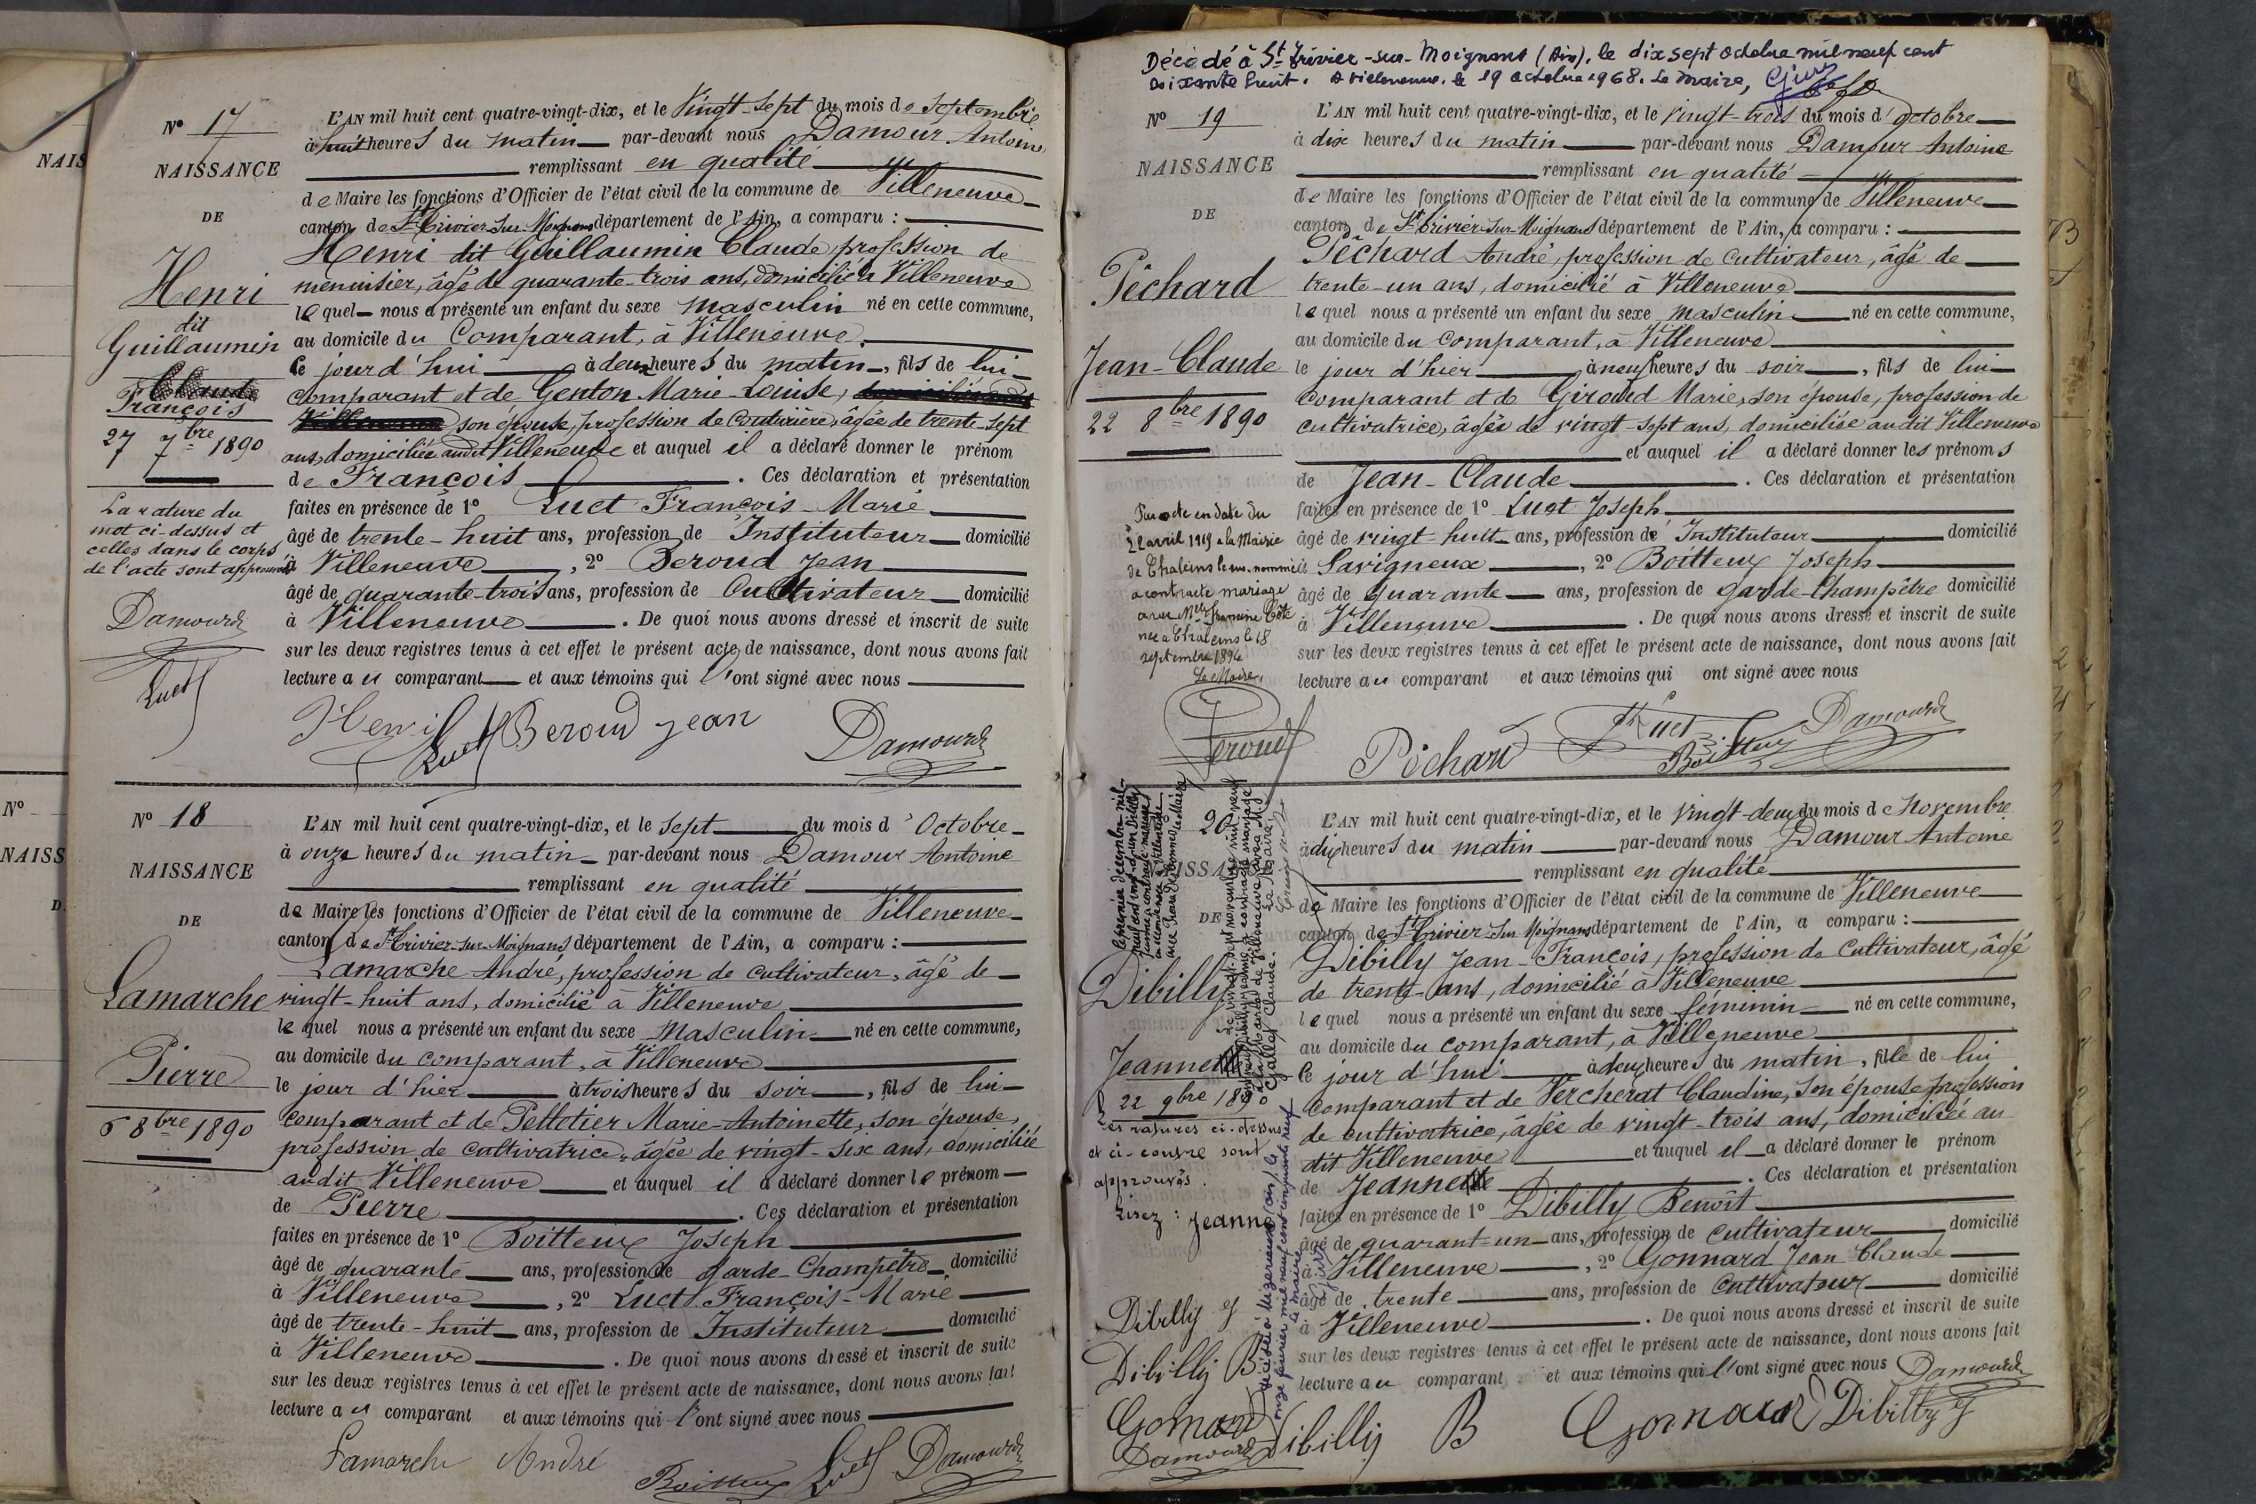 Nº 17
NAISSANCE
DE
Henri
dit
Guillaumin
François
27 7bre 1890
La rature du
mot ci-dessus et
celles dans le corps
de l'acte sont approuvées
Damour
Luet
L'AN mil huit cent quatre-vingt-dix, et le Vingt-Sept du mois de Septembre
à huit heures du matin par-devant nous Damour Antoine
remplissant en qualité
de Maire les fonctions d'Officier de l'état civil de la commune de Villeneuve
canton de St Trivier-Sur-Moignans département de l'Ain, a comparu :
Henri dit Guillaumin Claude, profession de
menuisier, âgé de quarante-trois ans, domicilié à Villeneuve
lequel nous a présenté un enfant du sexe masculin né en cette commune,
au domicile du Comparant, à Villeneuve
le jour d'hui à deux heures du matin, fils de lui
comparant et de Genton Marie-Louise,
son épouse, profession de Couturière, âgée de trente-sept
ans, domiciliée audit Villeneuve et auquel il a déclaré donner le prénom
de François. Ces déclaration et présentation
faites en présence de 1º Luet François-Marie
âgé de trente-huit ans, profession de Instituteur domicilié
à Villeneuve, 2º Beroud Jean
âgé de quarante-trois ans, profession de Cultivateur domicilié
à Villeneuve. De quoi nous avons dressé et inscrit de suite
sur les deux registres tenus à cet effet le présent acte de naissance, dont nous avons fait
lecture au comparant et aux témoins qui l'ont signé avec nous
Henri Luet Beroud Jean Damour
Nº 18
NAISSANCE
DE
Lamarche
Pierre
6 8bre 1890
L'AN mil huit cent quatre-vingt-dix, et le Sept du mois d'Octobre
à onze heures du matin par-devant nous Damour Antoine
remplissant en qualité
de Maire les fonctions d'Officier de l'état civil de la commune de Villeneuve
canton de St Trivier-Sur-Moignans département de l'Ain, a comparu :
Lamarche André, profession de cultivateur, âgé de
vingt-huit ans, domicilié à Villeneuve
lequel nous a présenté un enfant du sexe masculin né en cette commune,
au domicile du comparant, à Villeneuve
le jour d'hier à trois heures du soir, fils de lui
comparant et de Pelletier Marie-Antoinette, son épouse,
profession de cultivatrice, âgée de vingt-six ans, domiciliée
audit Villeneuve et auquel il a déclaré donner le prénom
de Pierre. Ces déclaration et présentation
faites en présence de 1º Boitteux Joseph
âgé de quarante ans, profession de garde-Champêtre, domicilié
à Villeneuve, 2º Luet François-Marie
âgé de trente-huit ans, profession de Instituteur domicilié
à Villeneuve. De quoi nous avons dressé et inscrit de suite
sur les deux registres tenus à cet effet le présent acte de naissance, dont nous avons fait
lecture au comparant et aux témoins qui l'ont signé avec nous
Lamarche André Boitteux Luet Damour
Décédé à St Trivier-sur-Moignans (Ain), le dix sept octobre mil neuf cent
soixante huit. A Villeneuve, le 19 octobre 1968. Le Maire,
Nº 19
NAISSANCE
DE
Péchard
Jean-Claude
22 8bre 1890
Par acte en date du
22 avril 1919 à la Mairie
de Chaleins le sus-nommé
a contracté mariage
avec Melle Francine Côte
née à Chaleins le 18
septembre 1894
Le Maire,
Beroud
L'AN mil huit cent quatre-vingt-dix, et le vingt-trois du mois d'octobre
à dix heures du matin par-devant nous Damour Antoine
remplissant en qualité
de Maire les fonctions d'Officier de l'état civil de la commune de Villeneuve
canton de St Trivier-Sur-Moignans département de l'Ain, a comparu :
Péchard André, profession de cultivateur, âgé de
trente-un ans, domicilié à Villeneuve
lequel nous a présenté un enfant du sexe masculin né en cette commune,
au domicile du comparant, à Villeneuve
le jour d'hier à neuf heures du soir, fils de lui
comparant et de Giroud Marie, son épouse, profession de
cultivatrice, âgée de vingt-sept ans, domiciliée audit Villeneuve
et auquel il a déclaré donner les prénoms
de Jean-Claude. Ces déclaration et présentation
faites en présence de 1º Luet Joseph
âgé de vingt huit ans, profession de Instituteur domicilié
à Savigneux, 2º Boitteux Joseph
âgé de quarante ans, profession de garde-Champêtre domicilié
à Villeneuve. De quoi nous avons dressé et inscrit de suite
sur les deux registres tenus à cet effet le présent acte de naissance, dont nous avons fait
lecture au comparant et aux témoins qui ont signé avec nous
Péchard Jh Luet Boitteux Damour
20
DE
Dibilly
Jeanne
22 9bre 1890
Les ratures ci-dessus
et ci-contre sont
approuvées.
Lisez : Jeanne
Dibilly J
Dibilly B
Gonnard
Damour
L'AN mil huit cent quatre-vingt-dix, et le vingt-deux du mois de Novembre
à dix heures du matin par-devant nous Damour Antoine
remplissant en qualité
de Maire les fonctions d'Officier de l'état civil de la commune de Villeneuve
canton de St Trivier-Sur-Moignans département de l'Ain, a comparu :
Dibilly Jean-François, profession de cultivateur, âgé
de trente ans, domicilié à Villeneuve
lequel nous a présenté un enfant du sexe féminin né en cette commune,
au domicile du comparant, à Villeneuve
le jour d'hui à deux heures du matin, fille de lui
comparant et de Vercherat Claudine, son épouse, profession
de cultivatrice, âgée de vingt-trois ans, domiciliée au
dit Villeneuve et auquel il a déclaré donner le prénom
de Jeanne. Ces déclaration et présentation
faites en présence de 1º Dibilly Benoît
âgé de quarant-un ans, profession de cultivateur domicilié
à Villeneuve, 2º Gonnard Jean Claude
âgé de trente ans, profession de cultivateur domicilié
à Villeneuve. De quoi nous avons dressé et inscrit de suite
sur les deux registres tenus à cet effet le présent acte de naissance, dont nous avons fait
lecture au comparant et aux témoins qui l'ont signé avec nous Damour
Dibilly B Gonnard Dibilly J